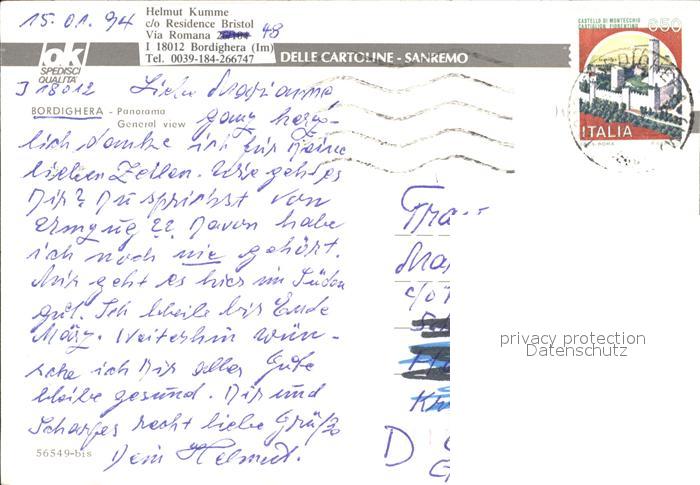 15.01.94
Helmut Kumme
c/o Residence Bristol
Via Romana 48
I 18012 Bordighera (Im)
Tel. 0039-184-266747
ok
SPEDISCI
QUALITA'
DELLE CARTOLINE - SANREMO
CASTELLO DI MONTECCHIO
CASTIGLION FIORENTINO
650
ITALIA
I 18012
Liebe Marianne
BORDIGHERA - Panorama
General view
ganz herz-
lich danke ich für Deine
lieben Zeilen. Wie geht es
Dir? Du sprichst von
Umzug?? Davon habe
ich noch nie gehört.
Mir geht es hier im Süden
gut. Ich bleibe bis Ende
März. Weiterhin wün-
sche ich Dir alles Gute
bleibe gesund. Dir und
recht liebe Grüße
Dein Helmut.
56549-bis
Fra
Ma
c/o
D
privacy protection
Datenschutz